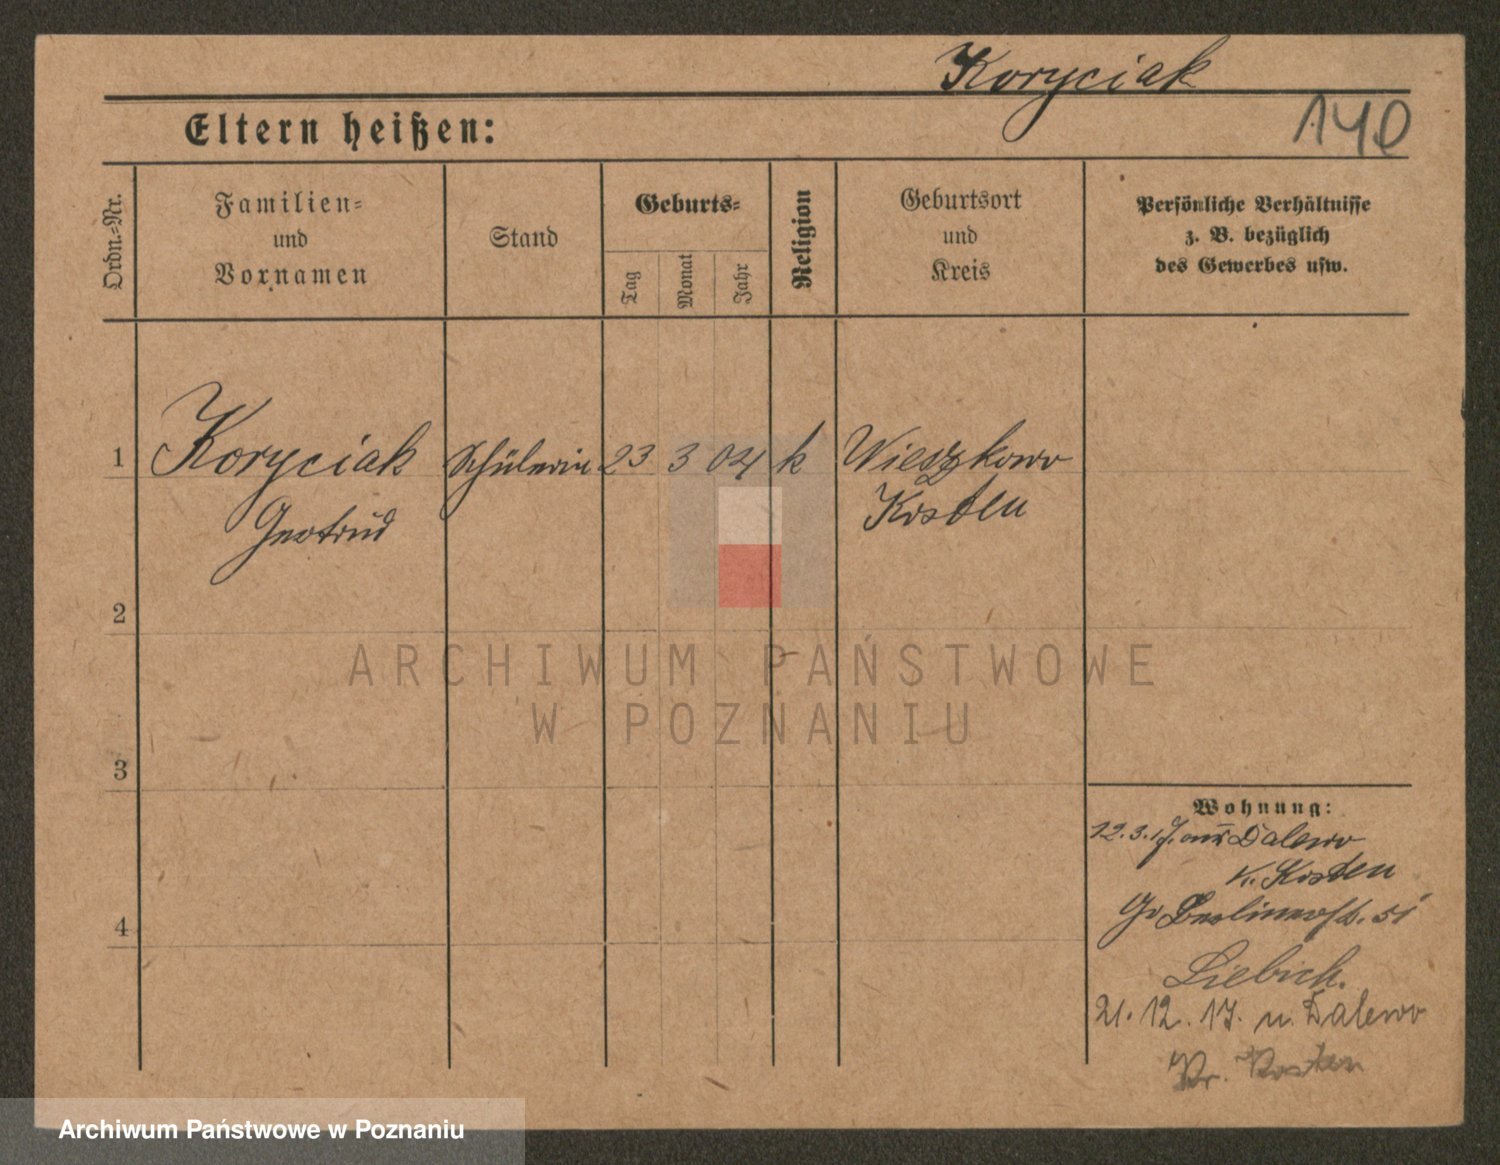 Koryciak
Eltern heißen:
140
Ordn.-Nr.
Familien-
und
Vornamen
Stand
Geburts-
Tag
Monat
Jahr
Religion
Geburtsort
und
Kreis
Persönliche Verhältnisse
z. B. bezüglich
des Gewerbes usw.
1 Koryciak Schülerin 23 3 04 k Wieszkowo
Gertrud Kosten
2
3
4
ARCHIWUM PAŃSTWOWE
W POZNANIU
Wohnung:
12.3.17. aus Dalewo
K. Kosten
Berlinerst. 51
Liebich.
21.12.17. n. Dalewo
Kr. Kosten
Archiwum Państwowe w Poznaniu